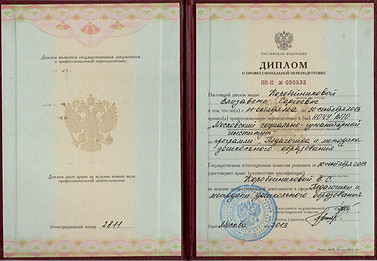 Диплом является государственным документом
о профессиональной переподготовке
Диплом дает право на ведение нового вида
профессиональной деятельности
Регистрационный номер 2811
РОССИЙСКАЯ ФЕДЕРАЦИЯ
ДИПЛОМ
О ПРОФЕССИОНАЛЬНОЙ ПЕРЕПОДГОТОВКЕ
ПП-II № 050533
Настоящий диплом выдан Коробейниковой
Елизавете Сергеевне
в том, что он(а) с 11 октября 2012 по 30 сентября 2013
прошел(а) профессиональную переподготовку в (на) НОЧУ ВПО
"Московский социально-гуманитарный
институт"
по программе "Педагогика и методика
дошкольного образования
Государственная аттестационная комиссия решением от 30 сентября 2013
удостоверяет право (соответствие квалификации)
Коробейниковой Е.С.
на ведение профессиональной деятельности в сфере Педагогики и
методики дошкольного образования
Город Москва 2013